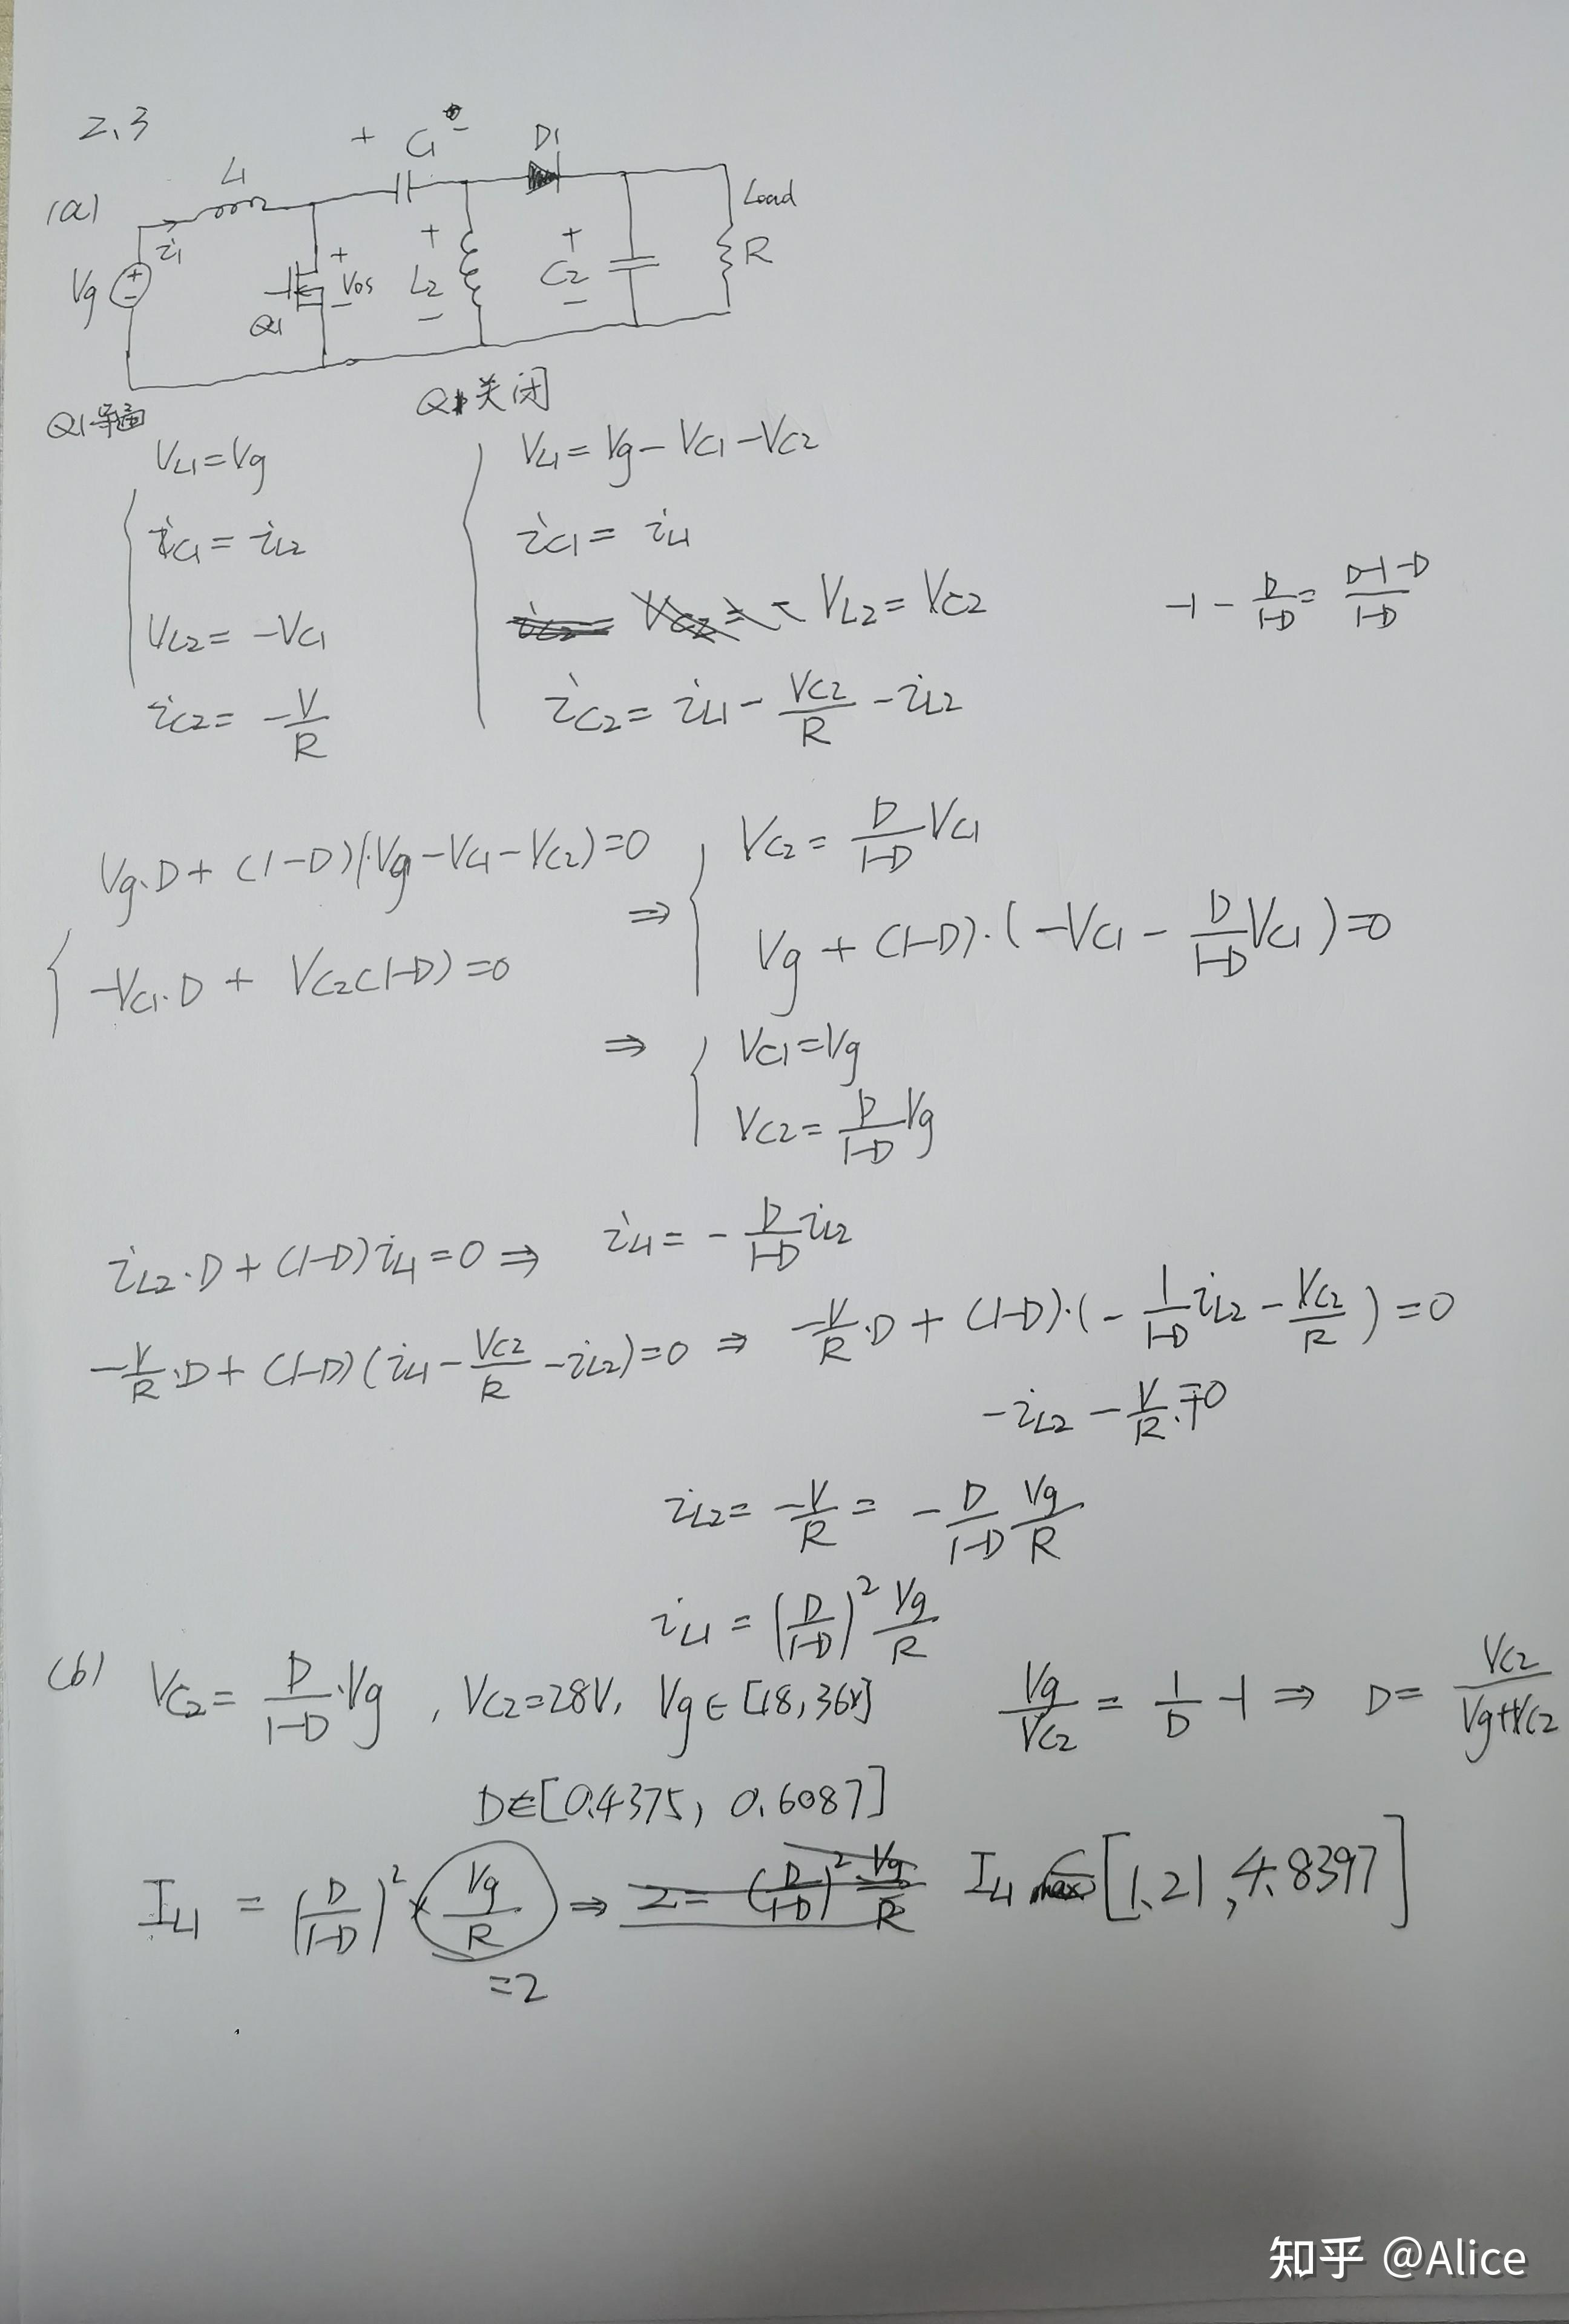 2.3
(a)
+ C1 -
D1
L1
i1
Vg
+
-
Q1
+
VDS
-
+
L2
-
+
C2
-
Load
R
Q1导通
VL1 = Vg
iC1 = iL2
VL2 = -VC1
iC2 = -V/R
Q1关闭
VL1 = Vg - VC1 - VC2
iC1 = iL1
VL2 = VC2
iC2 = iL1 - VC2/R - iL2
-1 - D/(1-D) = (D-1-D)/(1-D)
Vg·D + (1-D)(Vg - VC1 - VC2) = 0
-VC1·D + VC2(1-D) = 0
⇒ VC2 = D/(1-D) VC1
Vg + (1-D)·(-VC1 - D/(1-D) VC1) = 0
⇒ VC1 = Vg
VC2 = D/(1-D) Vg
iL2·D + (1-D)iL1 = 0 ⇒ iL1 = - D/(1-D) iL2
-V/R·D + (1-D)(iL1 - VC2/R - iL2) = 0 ⇒ -V/R·D + (1-D)·(- 1/(1-D) iL2 - VC2/R) = 0
-iL2 - V/R = 0
iL2 = -V/R = - D/(1-D) Vg/R
iL1 = (D/(1-D))² Vg/R
(b) VC2 = D/(1-D)·Vg , VC2=28V, Vg∈[18,36V] Vg/VC2 = 1/D -1 ⇒ D = VC2/(Vg+VC2)
D∈[0.4375, 0.6087]
IL1 = (D/(1-D))² × Vg/R ⇒ 2 = (D/(1-D))² Vg/R IL1 ∈ [1.21, 4.8397]
=2
知乎 @Alice